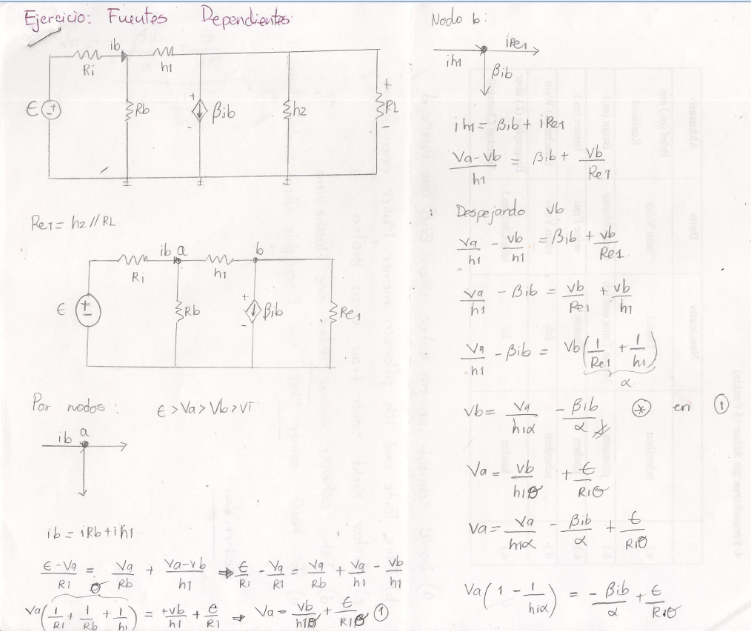 Ejercicio: Fuentes Dependientes
ib
Ri h1
ϵ Rb βib h2 RL
Re1 = h2 // RL
ib a b
Ri h1
ϵ Rb βib Re1
Por nodos: ϵ > Va > Vb > VT
ib a
ib = iRb + ih1
(ϵ - Va)/R1 = Va/Rb + (Va - Vb)/h1 → ϵ/R1 - Va/R1 = Va/Rb + Va/h1 - Vb/h1
θ
Va(1/R1 + 1/Rb + 1/h1) = +Vb/h1 + ϵ/R1 → Va = Vb/h1θ + ϵ/R1θ ①
Nodo b:
ih1 iRe1
βib
ih1 = βib + iRe1
(Va - Vb)/h1 = βib + Vb/Re1
Despejando Vb
Va/h1 - Vb/h1 = βib + Vb/Re1
Va/h1 - βib = Vb/Re1 + Vb/h1
Va/h1 - βib = Vb(1/Re1 + 1/h1)
α
Vb = Va/h1α - βib/α ⊛ en ①
Va = Vb/h1θ + ϵ/R1θ
Va = Va/h1α - βib/α + ϵ/R1θ
Va(1 - 1/h1α) = -βib/α + ϵ/R1θ